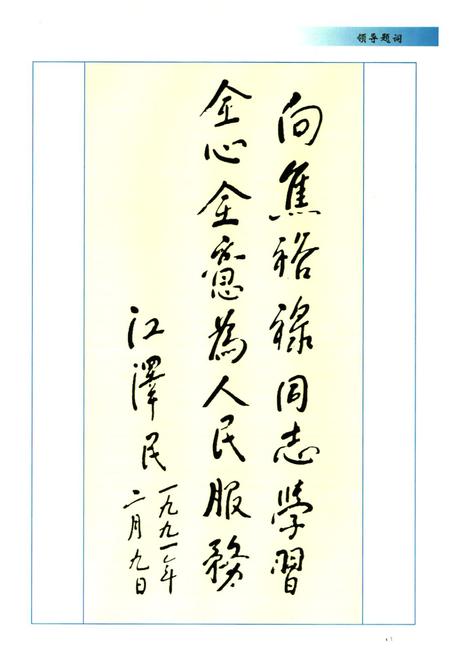 领导题词
向焦裕禄同志學習
全心全意為人民服務
江澤民
一九九一年
二月九日